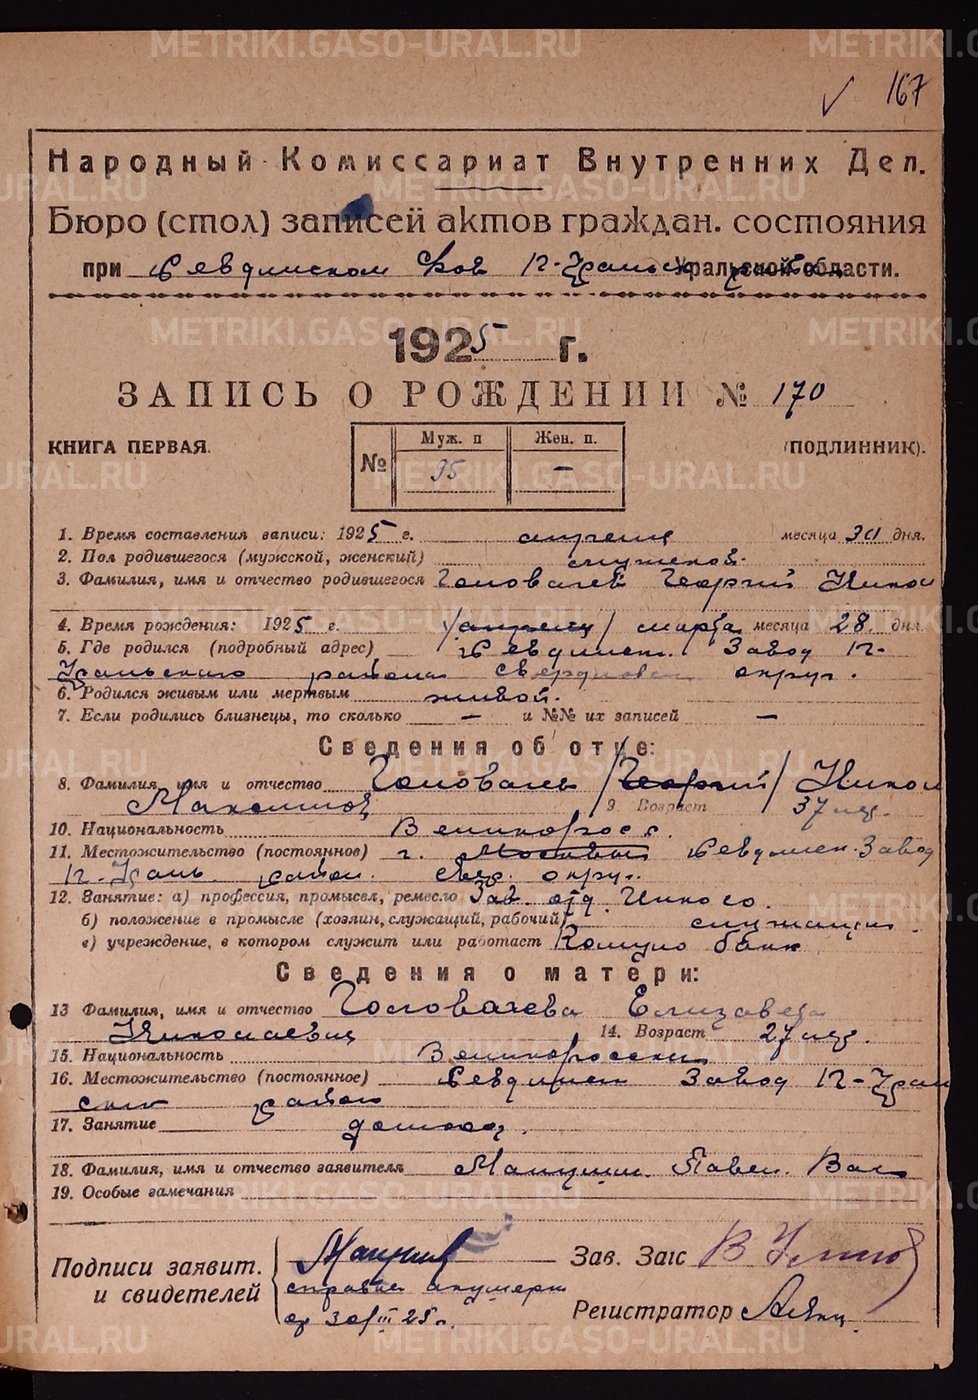 167
Народный Комиссариат Внутренних Дел.
Бюро (стол) записей актов граждан. состояния
при Ревдинском П-Уральск Уральской области.
1925 г.
ЗАПИСЬ О РОЖДЕНИИ № 170
КНИГА ПЕРВАЯ. (ПОДЛИННИК).
№ Муж. п Жен. п.
95 —
1. Время составления записи: 1925 г. апреля месяца 30 дня.
2. Пол родившегося (мужской, женский) мужской.
3. Фамилия, имя и отчество родившегося Головачев Георгий Никол
4. Время рождения: 1925 г. /апреля/ марта месяца 28 дня
5. Где родился (подробный адрес) Ревдинск. Завод П-
Уральского района Свердловск округ.
6. Родился живым или мертвым живой.
7. Если родились близнецы, то сколько — и №№ их записей —
Сведения об отце:
8. Фамилия, имя и отчество Головачев /Георгий/ Никол
9. Возраст 37 лет.
10. Национальность Великоросс.
11. Местожительство (постоянное) г. Москвы Ревдинск. Завод
П-Ураль. район. Свер. округ.
12. Занятие: а) профессия, промысел, ремесло Зав. отд.
б) положение в промысле (хозяин, служащий, рабочий) служащий.
в) учреждение, в котором служит или работает банк
Сведения о матери:
13 Фамилия, имя и отчество Головачева Елизавета
Николаевна 14. Возраст 27 лет.
15. Национальность Великоросска
16. Местожительство (постоянное) Ревдинск Завод П-Урал
ский район
17. Занятие домохоз.
18. Фамилия, имя и отчество заявителя Павел. Вас
19. Особые замечания
Подписи заявит. и свидетелей
Зав. Загс
справка акушерки
от 30/III 25 г.
Регистратор
METRIKI.GASO-URAL.RU